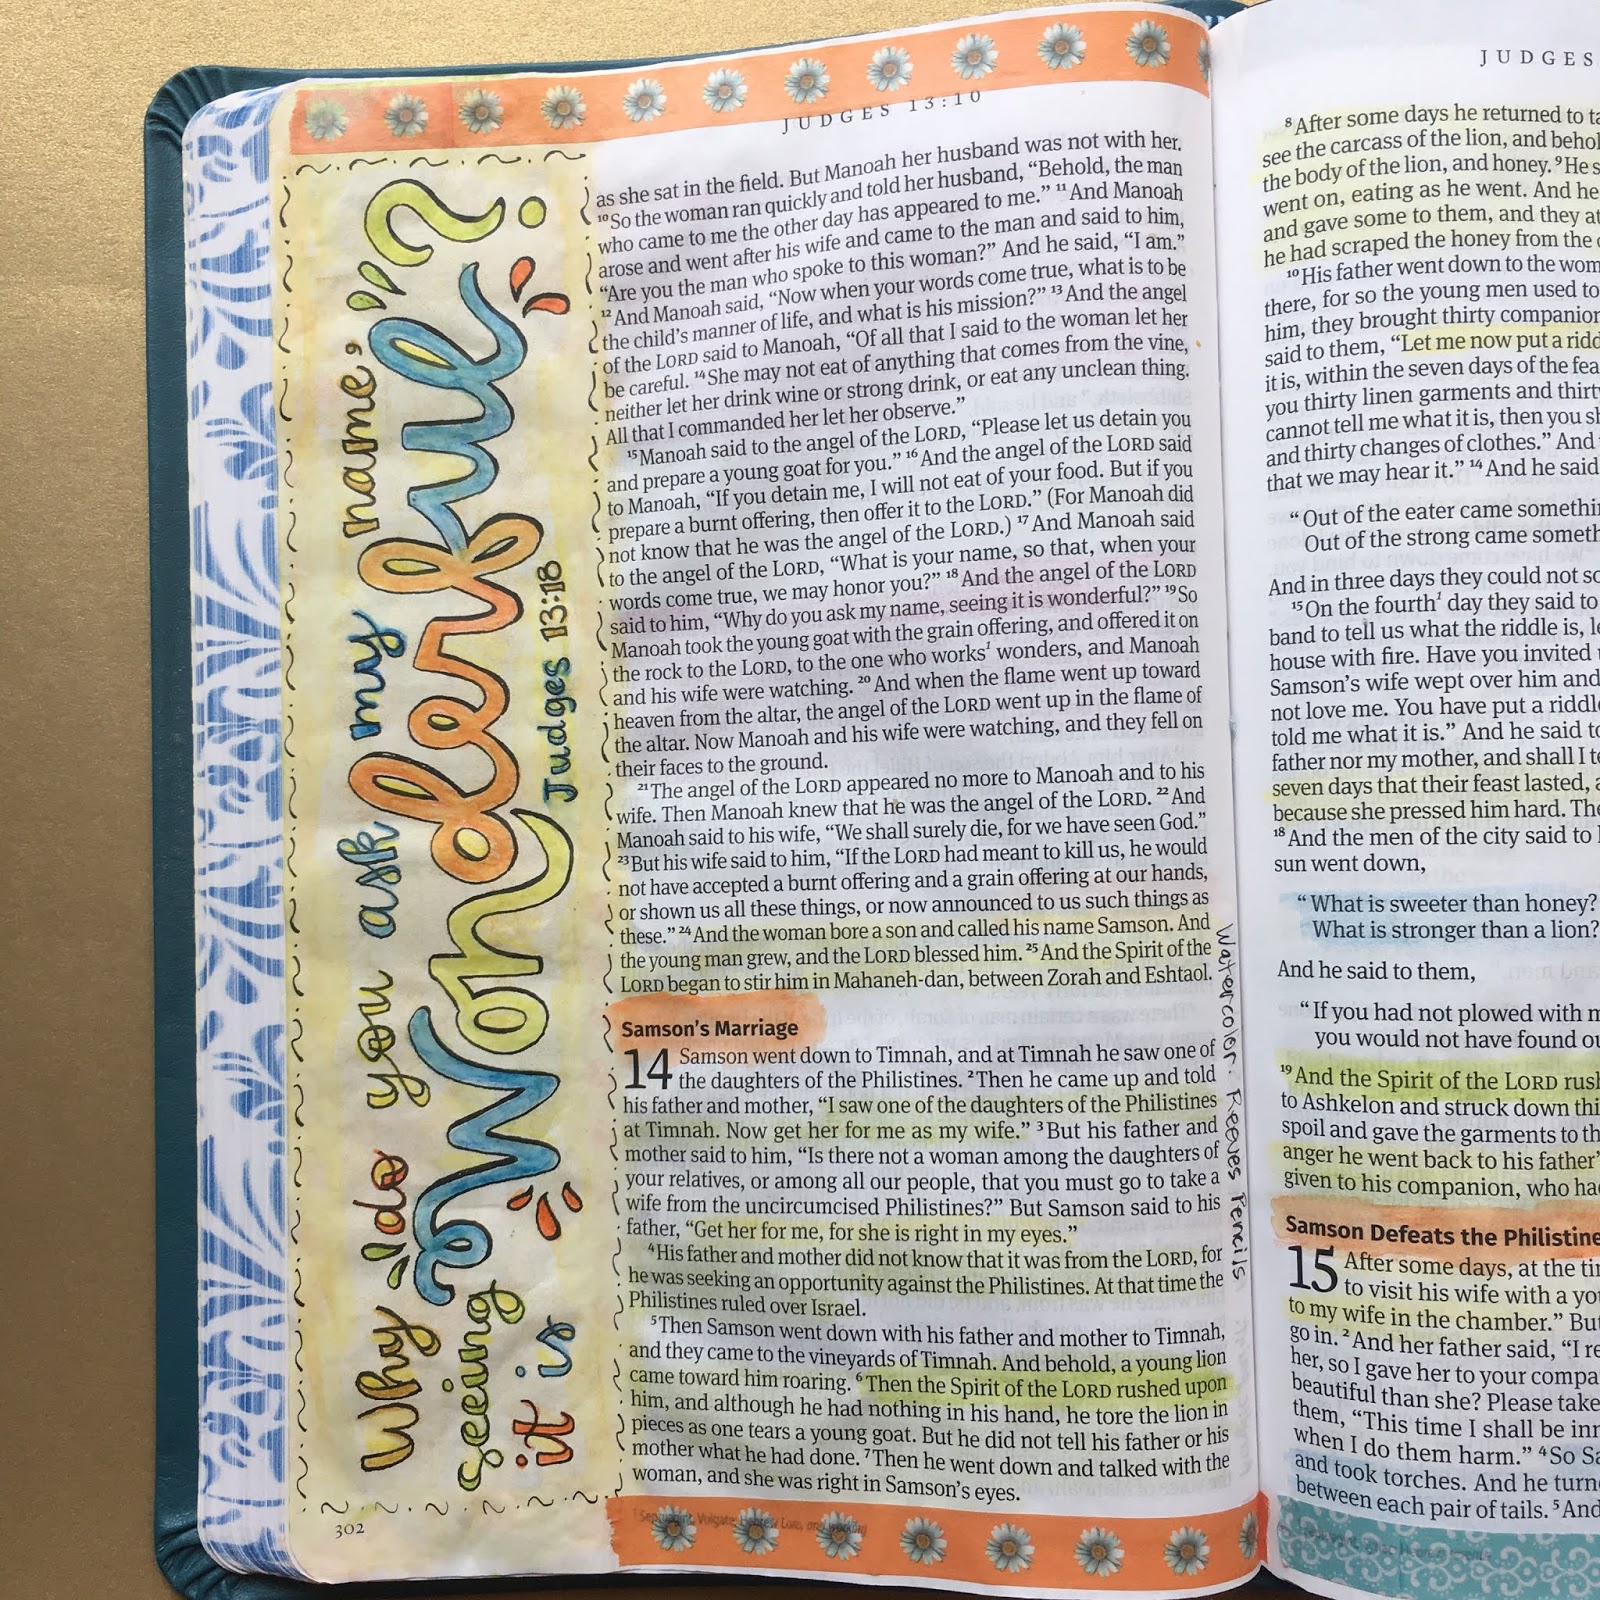 Why do you ask my name,
seeing
it is
wonderful?
Judges 13:18
302
JUDGES 13:10
as she sat in the field. But Manoah her husband was not with her.
¹⁰So the woman ran quickly and told her husband, “Behold, the man
who came to me the other day has appeared to me.” ¹¹And Manoah
arose and went after his wife and came to the man and said to him,
“Are you the man who spoke to this woman?” And he said, “I am.”
¹²And Manoah said, “Now when your words come true, what is to be
the child’s manner of life, and what is his mission?” ¹³And the angel
of the LORD said to Manoah, “Of all that I said to the woman let her
be careful. ¹⁴She may not eat of anything that comes from the vine,
neither let her drink wine or strong drink, or eat any unclean thing.
All that I commanded her let her observe.”
¹⁵Manoah said to the angel of the LORD, “Please let us detain you
and prepare a young goat for you.” ¹⁶And the angel of the LORD said
to Manoah, “If you detain me, I will not eat of your food. But if you
prepare a burnt offering, then offer it to the LORD.” (For Manoah did
not know that he was the angel of the LORD.) ¹⁷And Manoah said
to the angel of the LORD, “What is your name, so that, when your
words come true, we may honor you?” ¹⁸And the angel of the LORD
said to him, “Why do you ask my name, seeing it is wonderful?” ¹⁹So
Manoah took the young goat with the grain offering, and offered it on
the rock to the LORD, to the one who works¹ wonders, and Manoah
and his wife were watching. ²⁰And when the flame went up toward
heaven from the altar, the angel of the LORD went up in the flame of
the altar. Now Manoah and his wife were watching, and they fell on
their faces to the ground.
²¹The angel of the LORD appeared no more to Manoah and to his
wife. Then Manoah knew that he was the angel of the LORD. ²²And
Manoah said to his wife, “We shall surely die, for we have seen God.”
²³But his wife said to him, “If the LORD had meant to kill us, he would
not have accepted a burnt offering and a grain offering at our hands,
or shown us all these things, or now announced to us such things as
these.” ²⁴And the woman bore a son and called his name Samson. And
the young man grew, and the LORD blessed him. ²⁵And the Spirit of the
LORD began to stir him in Mahaneh-dan, between Zorah and Eshtaol.
Samson’s Marriage
14 Samson went down to Timnah, and at Timnah he saw one of
the daughters of the Philistines. ²Then he came up and told
his father and mother, “I saw one of the daughters of the Philistines
at Timnah. Now get her for me as my wife.” ³But his father and
mother said to him, “Is there not a woman among the daughters of
your relatives, or among all our people, that you must go to take a
wife from the uncircumcised Philistines?” But Samson said to his
father, “Get her for me, for she is right in my eyes.”
⁴His father and mother did not know that it was from the LORD, for
he was seeking an opportunity against the Philistines. At that time the
Philistines ruled over Israel.
⁵Then Samson went down with his father and mother to Timnah,
and they came to the vineyards of Timnah. And behold, a young lion
came toward him roaring. ⁶Then the Spirit of the LORD rushed upon
him, and although he had nothing in his hand, he tore the lion in
pieces as one tears a young goat. But he did not tell his father or his
mother what he had done. ⁷Then he went down and talked with the
woman, and she was right in Samson’s eyes.
¹ Septuagint, Vulgate; Hebrew LORD, and working
Watercolor: Reeves Pencils
JUDGES
⁸After some days he returned to
see the carcass of the lion, and
the body of the lion, and honey. ⁹He
went on, eating as he went. And he
and gave some to them, and they
he had scraped the honey from the
¹⁰His father went down to the
there, for so the young men used to
him, they brought thirty
said to them, “Let me now put a
it is, within the seven days of the
you thirty linen garments and
cannot tell me what it is, then you
and thirty changes of clothes.” And
that we may hear it.” ¹⁴And he said
“Out of the eater came
Out of the strong came
And in three days they could not
¹⁵On the fourth¹ day they said to
band to tell us what the riddle is,
house with fire. Have you invited
Samson’s wife wept over him and
not love me. You have put a
told me what it is.” And he said
father nor my mother, and shall I
seven days that their feast lasted,
because she pressed him hard.
¹⁸And the men of the city said to
sun went down,
“What is sweeter than honey?
What is stronger than a lion?
And he said to them,
“If you had not plowed with
you would not have found
¹⁹And the Spirit of the LORD
to Ashkelon and struck down
spoil and gave the garments to
anger he went back to his father’s
given to his companion, who
Samson Defeats the
15 After some days, at the
to visit his wife with a
to my wife in the chamber.” But
go in. ²And her father said, “I
her, so I gave her to your
beautiful than she? Please take
them, “This time I shall be
when I do them harm.” ⁴So
and took torches. And he
between each pair of tails. ⁵And